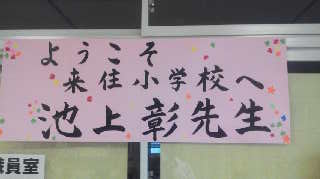 ようこそ
来住小学校へ
池上彰先生
員室